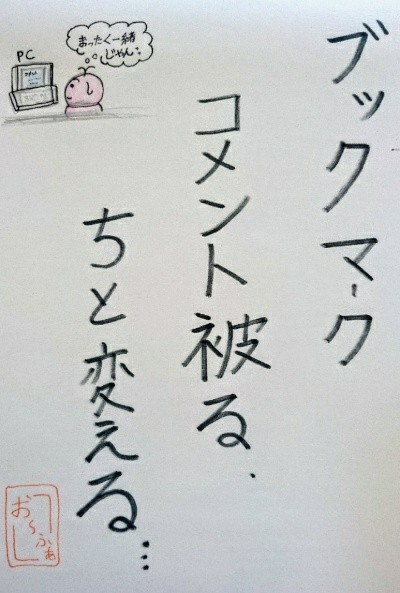 ブックマーク
コメント被る.
ちと変える…
まったく一緒
じゃん…
PC